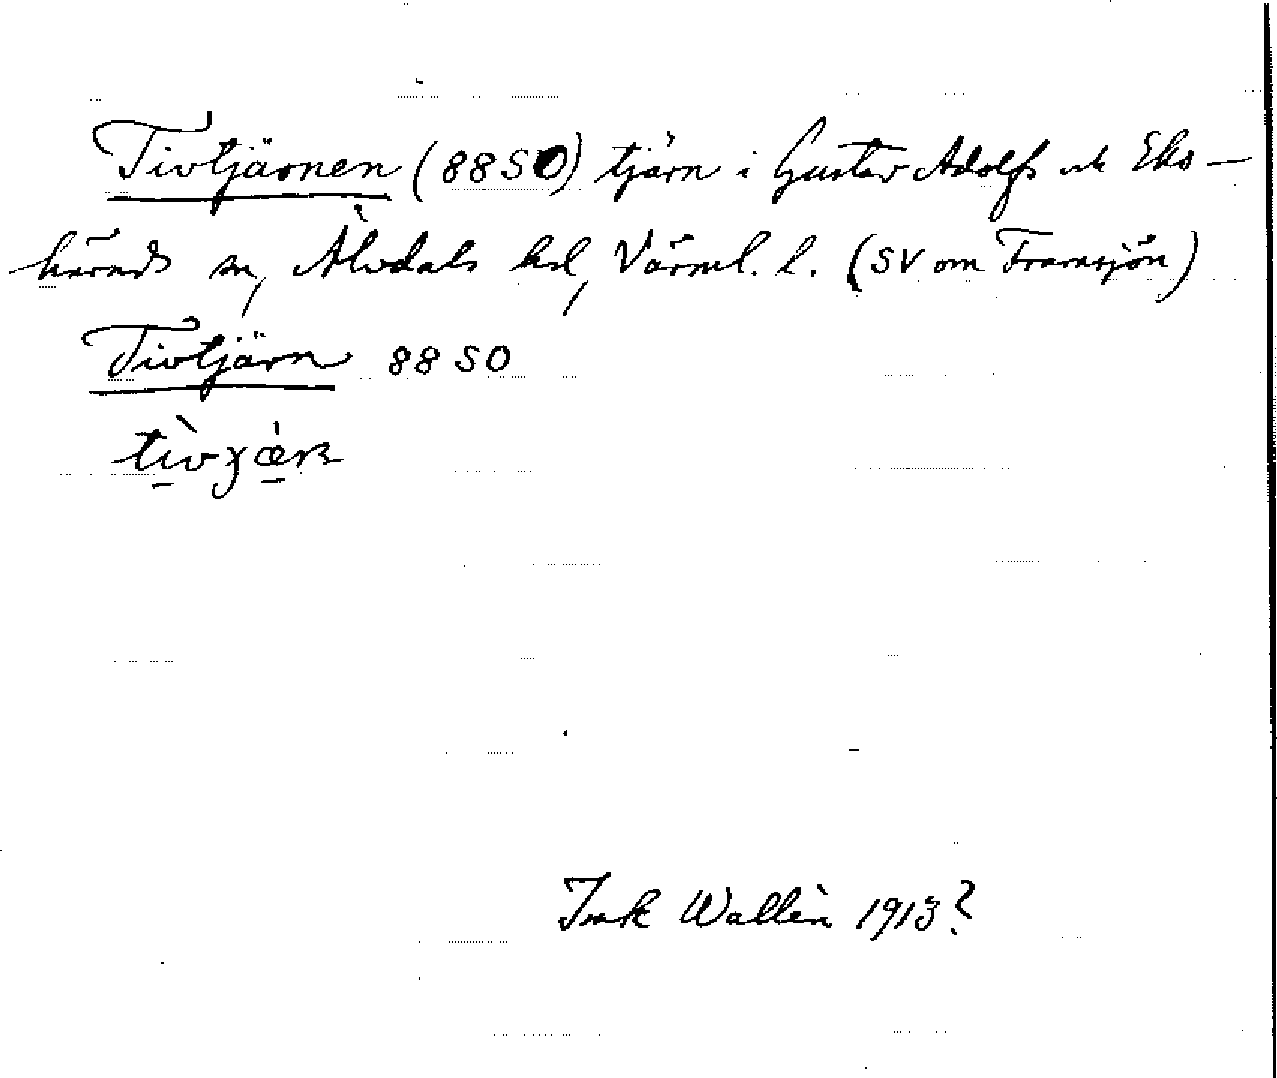 Tivtjärnen (88SO) tjärn i Gustav Adolfs och Eks-
härads sn, Älvdals hd, Värml. l. (SV om Framsjön)
Tivtjärn 88 SO
Ink Wallén 1913?